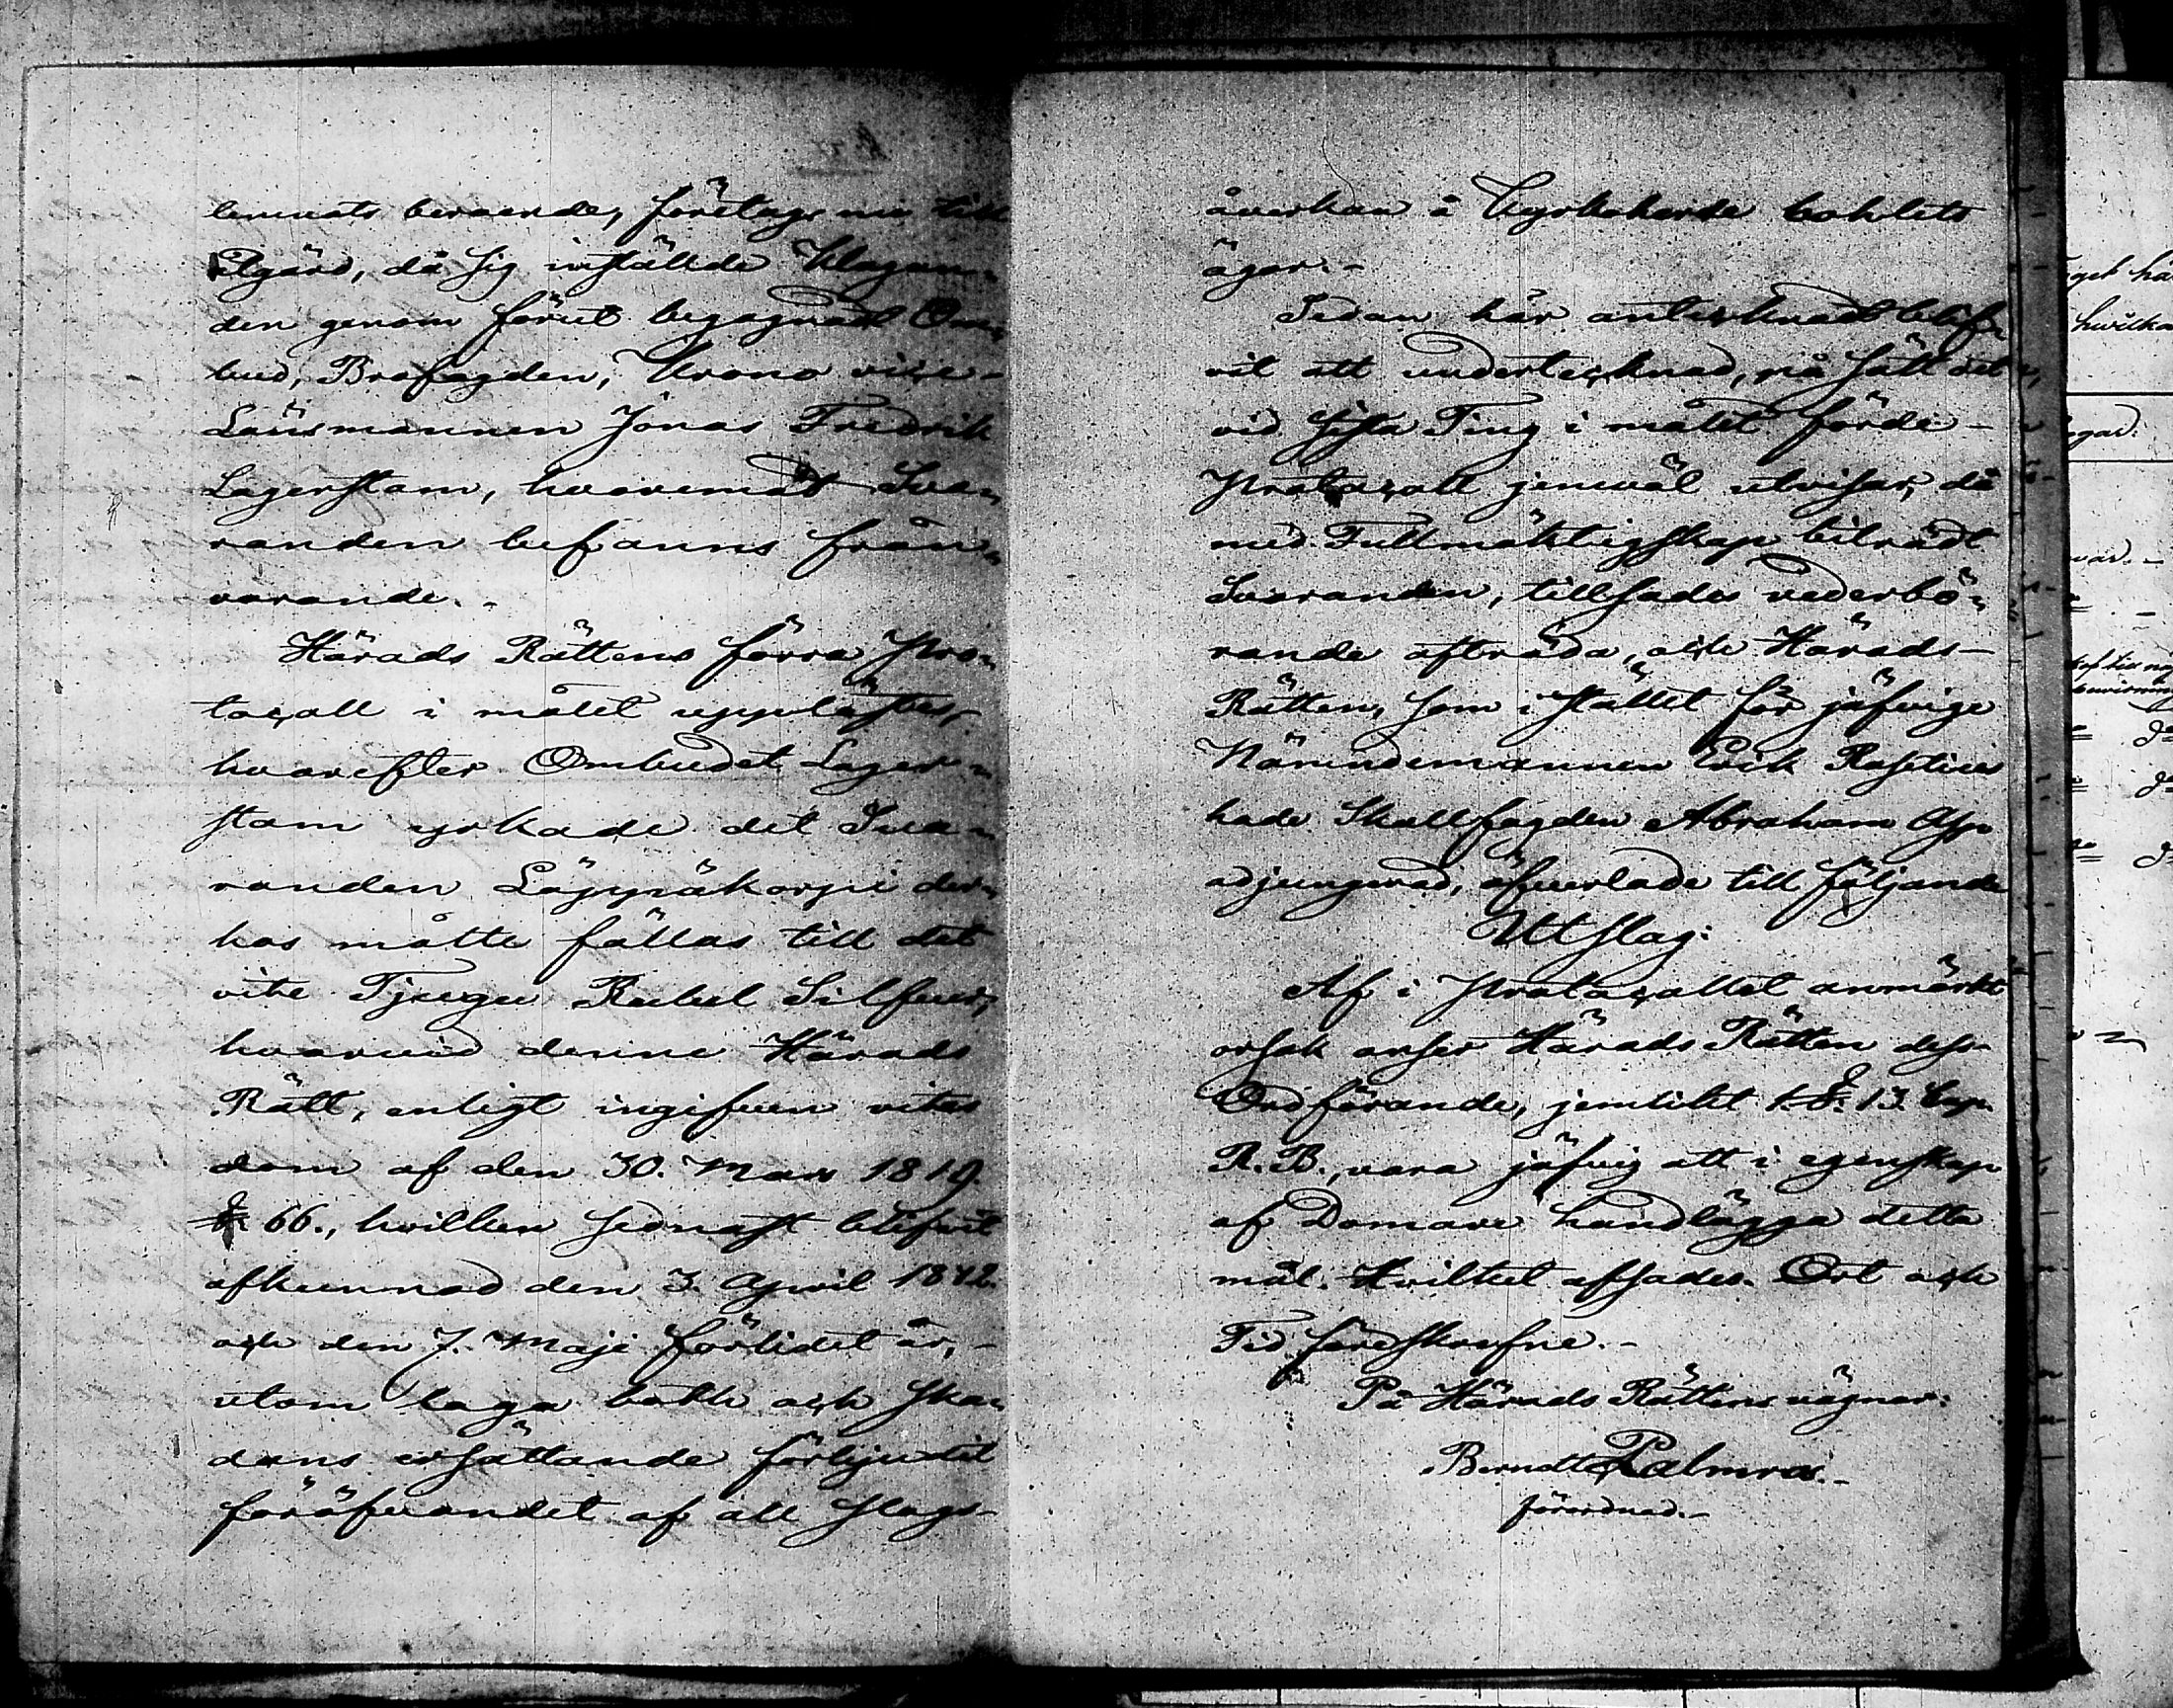 lemnats beroende, företogs nu till
åtgärd, då sig inställde Klagan¬
den genom förut begagnadt Om¬
bud, Brofogden, Krono vice-
Länsmannen Jonas Fredrik
Lagerstam, hvaremot Sva¬
randen befanns från¬
varande. -
Härads Rättens förra Pro¬
tocoll i målet upplästes,
hvarefter Ombudet Lager¬
stam yrkade det Sva¬
randen Läppäkorpi der¬
hos måtte fällas till det
vite Tjugu Rubel Silfver,
hvarvid denne Härads
Rätt, enligt ingifven vites
dom af den 30. Mars 1819.
§ 66., hvilken sednast blifvit
afkunnad den 3. April 1842.
och den 7. Maji förlidet år, -
utom laga bot och ska¬
dans ersättande förbjudit
föröfvandet af all slags
åverkan å Kyrkoherde bohlets
ägor. -
Sedan här antecknadt blif¬
vit att undertecknad, på sätt det
vid sista Ting i målet förde -
Protocoll jemväl utvisar, då
med Fullmäktigskap biträdt
Svaranden, tillsades vederbö¬
rande afträda, och Härads-
Rätten, som i stället för jäfvige
Nämndemannen Erik
hade Skallfogden Abraham
adjungerad, öfverlade till följande
Utslag:
Af i Protocollet anmärkt
orsak anser Härads Rätten dess
Ordförande, jemlikt 1. §. 13. Cap.
R. B., vara jäfvig att i egenskap
af Domare handlägga detta
mål. Hvilket afsades. Ort och
Tid föreskrefne. -
På Härads Rättens vägnar:
Berndt Palmros. -
förordnad. -